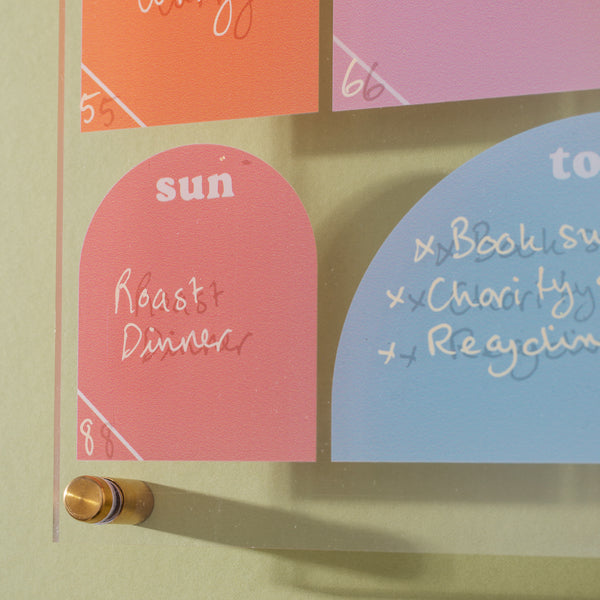 5
6
sun
to
Roast
Dinner
8
x Book su
x Charity
x Recyclin